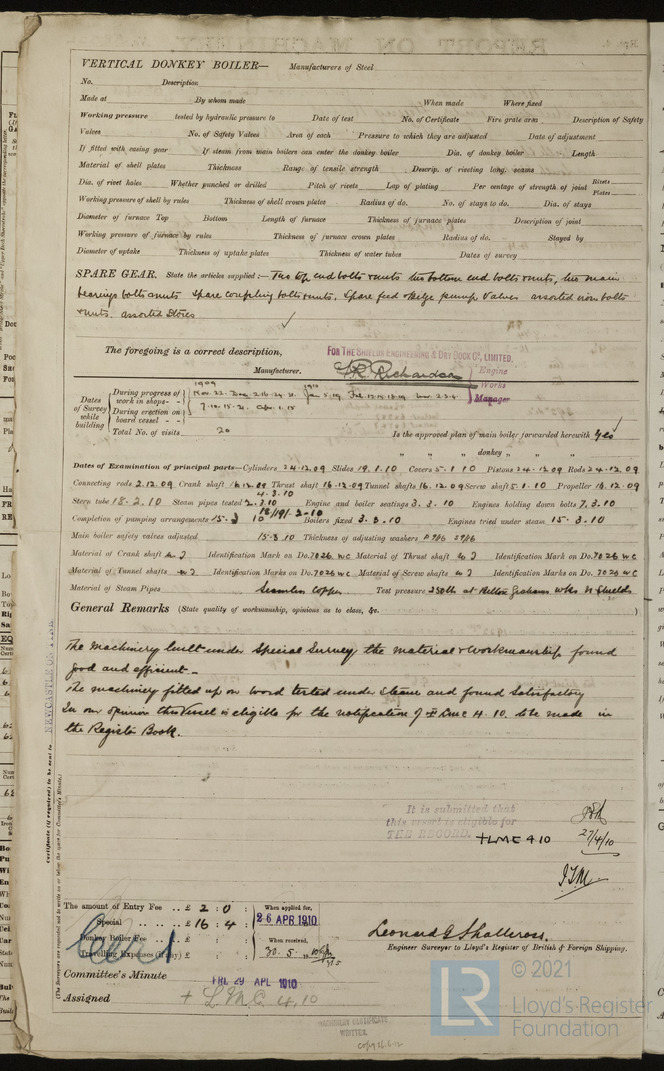 VERTICAL DONKEY BOILER— Manufacturers of Steel
No. Description
Made at By whom made When made Where fixed
Working pressure tested by hydraulic pressure to Date of test No. of Certificate Fire grate area Description of Safety
Valves No. of Safety Valves Area of each Pressure to which they are adjusted Date of adjustment
If fitted with easing gear If steam from main boilers can enter the donkey boiler Dia. of donkey boiler Length
Material of shell plates Thickness Range of tensile strength Descrip. of riveting long. seams
Dia. of rivet holes Whether punched or drilled Pitch of rivets Lap of plating Per centage of strength of joint Rivets Plates
Working pressure of shell by rules Thickness of shell crown plates Radius of do. No. of stays to do. Dia. of stays
Diameter of furnace Top Bottom Length of furnace Thickness of furnace plates Description of joint
Working pressure of furnace by rules Thickness of furnace crown plates Radius of do. Stayed by
Diameter of uptake Thickness of uptake plates Thickness of water tubes Dates of survey
SPARE GEAR. State the articles supplied:— Two top end bolts & nuts, two bottom end bolts & nuts, two main
bearings bolts & nuts. Spare coupling bolts & nuts. Spare feed & bilge pump valves assorted iron bolts
& nuts. assorted Stores
The foregoing is a correct description,
FOR THE SHIELDS ENGINEERING & DRY DOCK CO., LIMITED.
Manufacturer. Richardson Engine Works Manager
Dates of Survey while building
During progress of work in shops - -
1909 Nov. 22. Dec. 2.16.24.31. 1910 Jan 5.19. Feb
During erection on board vessel - - 7.10.15.21. Apr. 1.15
Total No. of visits 20
Is the approved plan of main boiler forwarded herewith Yes
" " " donkey " "
Dates of Examination of principal parts—Cylinders 24.12.09 Slides 19.1.10 Covers 5.1.10 Pistons 24.12.09 Rods 24.12.09
Connecting rods 2.12.09 Crank shaft 16.12.09 Thrust shaft 16.12.09 Tunnel shafts 16.12.09 Screw shaft 5.1.10 Propeller 16.12.09
Stern tube 18.2.10 Steam pipes tested 4.3.10 2.3.10 Engine and boiler seatings 3.3.10 Engines holding down bolts 7.3.10
Completion of pumping arrangements 15.3.10 Boilers fixed 3.3.10 Engines tried under steam 15.3.10
Main boiler safety valves adjusted 15.3.10 Thickness of adjusting washers
Material of Crank shaft Identification Mark on Do. 7026 WC Material of Thrust shaft Identification Mark on Do. 7026 WC
Material of Tunnel shafts Identification Marks on Do. 7026 WC Material of Screw shafts Identification Marks on Do. 7026 WC
Material of Steam Pipes Seamless Copper Test pressure 250 lbs at Grahams Wks N Shields
General Remarks (State quality of workmanship, opinions as to class, &c.
The machinery built under Special Survey the material & Workmanship found
good and efficient.—
The machinery fitted up on board tested under Steam and found Satisfactory
In our opinion this Vessel is eligible for the notification of + LMC 4.10. to be made in
the Register Book.
It is submitted that
this vessel is eligible for
THE RECORD. + LMC 4 10
27/4/10
Certificate (if required) to be sent to NEWCASTLE ON TYNE
(The Surveyors are requested not to write on or below the space for Committee's Minute.)
The amount of Entry Fee .. £ 2 : 0 : When applied for,
Special .. .. £ 16 : 4 : 26 APR 1910
Donkey Boiler Fee .. .. £ : : When received,
Travelling Expenses (if any) £ : : 30.5.10
Leonard E Shallcross
Engineer Surveyor to Lloyd's Register of British & Foreign Shipping.
Committee's Minute FRI. 29 APL 1910
Assigned + L.M.C. 4.10
MACHINERY CERTIFICATE
WRITTEN.
© 2021
LR Lloyd's Register
Foundation